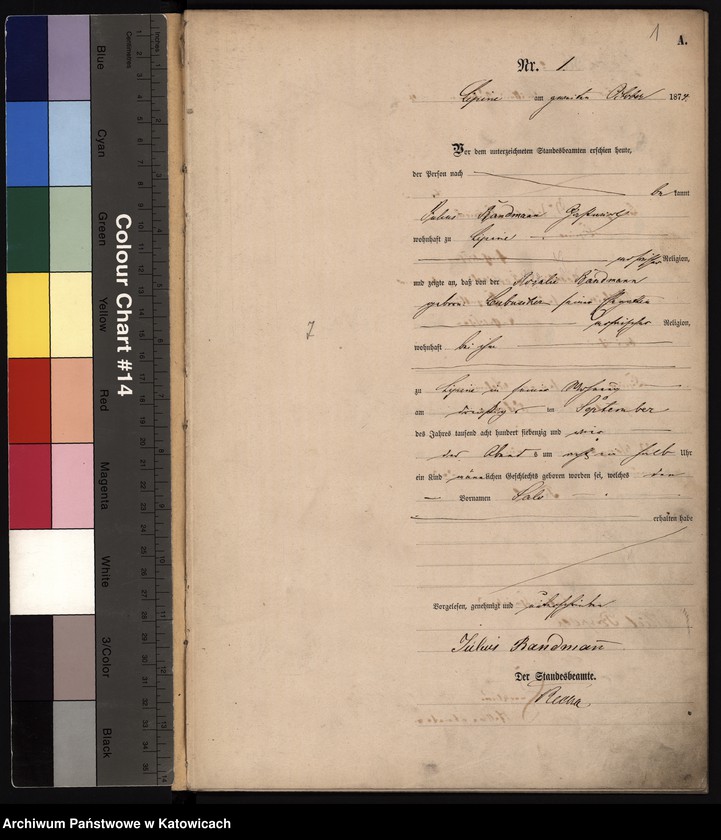 Blue
Cyan
Green
Yellow
Red
Magenta
White
3/Color
Black
Colour Chart #14
Centimetres
Inches
1
A.
Nr. 1.
Lipine am zweiten October 1874.
Vor dem unterzeichneten Standesbeamten erschien heute,
der Person nach
bekannt
Julius Randmann Gastwirth
wohnhaft zu Lipine
mosaischer Religion,
und zeigte an, daß von der Rosalie Randmann
geborne seiner Ehefrau
mosaischer Religion,
wohnhaft bei ihm
zu Lipine in seiner Wohnung
am dreißigsten September
des Jahres tausend acht hundert siebenzig und vier
des Abends um halb Uhr
ein Kind männlichen Geschlechts geboren worden sei, welches den
Vornamen Salo
erhalten habe
Vorgelesen, genehmigt und unterschrieben
Julius Randmann
Der Standesbeamte.
Archiwum Państwowe w Katowicach